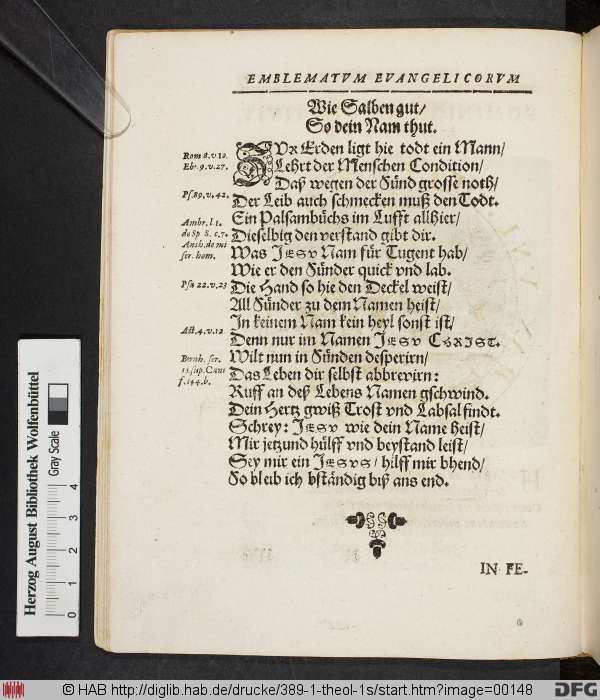 EMBLEMATVM EVANGELICORVM
Wie Salben gut/
So dein Nam thut.
ZVR Erden ligt hie todt ein Mann/
Lehrt der Menschen Condition/
Daß wegen der Sünd grosse noth/
Der Leib auch schmecken muß den Todt.
Ein Palsambüchs im Lufft allhier/
Dieselbig den verstand gibt dir.
Was JESV Nam für Tugent hab/
Wie er den Sünder quick vnd lab.
Die Hand so hie den Deckel weist/
All Sünder zu dem Namen heist/
In keinem Nam kein heyl sonst ist/
Denn nur im Namen JESV CHRIST.
Wilt nun in Sünden desperirn/
Das Leben dir selbst abbrevirn:
Ruff an deß Lebens Namen gschwind.
Dein Hertz gwiß Trost vnd Labsal findt.
Schrey: JESV wie dein Name heist/
Mir jetzund hülff vnd beystand leist/
Sey mir ein JESVS/ hilff mir bhend/
So bleib ich bständig biß ans end.
Rom 8.v.10.
Ebr. 9.v.27.
Ps. 89.v.42.
Ambr. l.1.
de Sp S. c.7.
Ansh. de mi
ser. hom.
Psa 22.v.23
Act. 4.v.12
Bernh. ser.
15. sup. Cant
f. 144.b.
IN FE-
Herzog August Bibliothek Wolfenbüttel
Gray Scale
0 1 2 3 4
© HAB http://diglib.hab.de/drucke/389-1-theol-1s/start.htm?image=00148
DFG